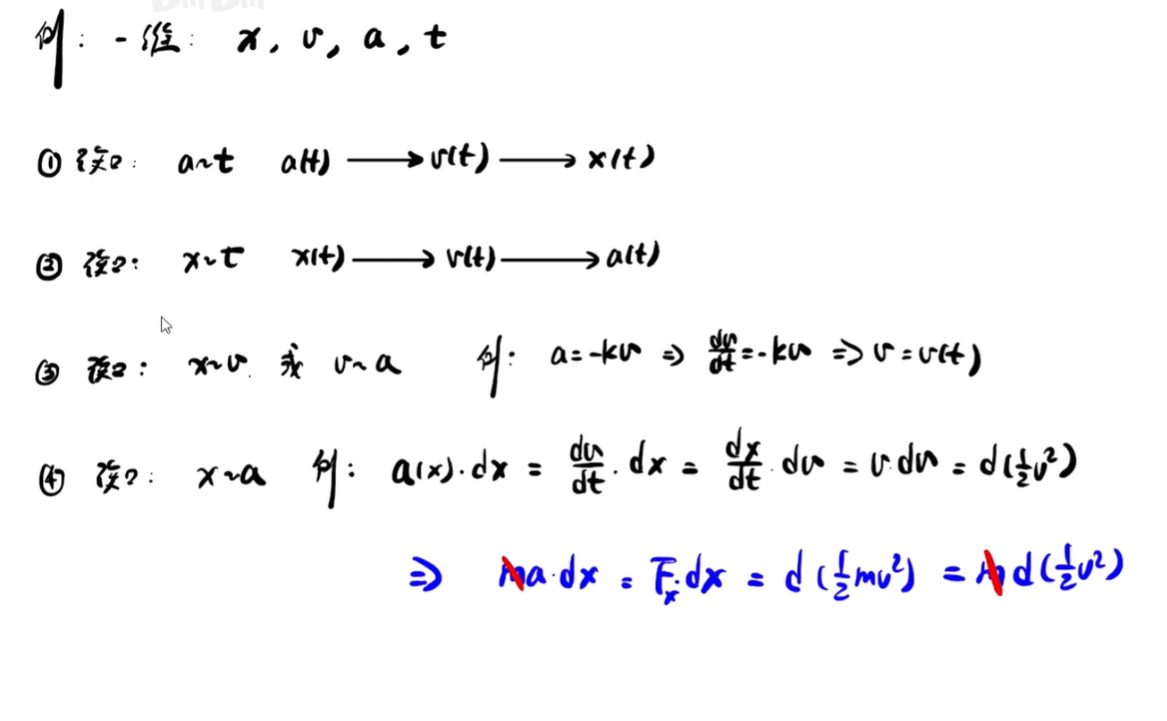 例：一维： x, v, a, t
① 已知： a~t a(t) ⟶ v(t) ⟶ x(t)
② 已知： x~t x(t) ⟶ v(t) ⟶ a(t)
③ 已知： x~v 或 v~a 例： a=-kv ⇒ dv/dt=-kv ⇒ v=v(t)
④ 已知： x~a 例： a(x)·dx = dv/dt·dx = dx/dt·dv = v·dv = d(½v²)
⇒ ma·dx = Fₓ·dx = d(½mv²) = m d(½v²)